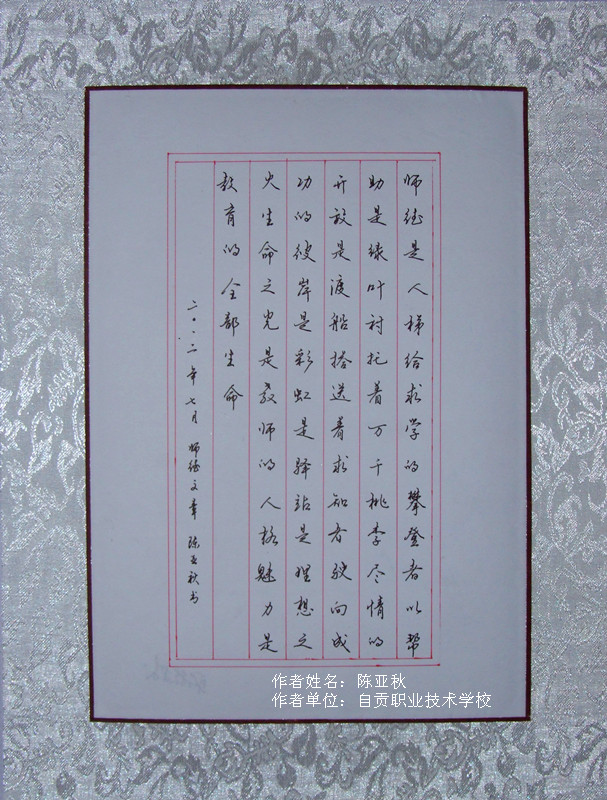 师德是人梯给求学的攀登者以帮
助是绿叶衬托着万千桃李尽情的
开放是渡船搭送着求知者驶向成
功的彼岸是彩虹是驿站是理想之
火生命之光是教师的人格魅力是
教育的全部生命
二〇一二年七月 师德文章 陈亚秋书
作者姓名：陈亚秋
作者单位：自贡职业技术学校